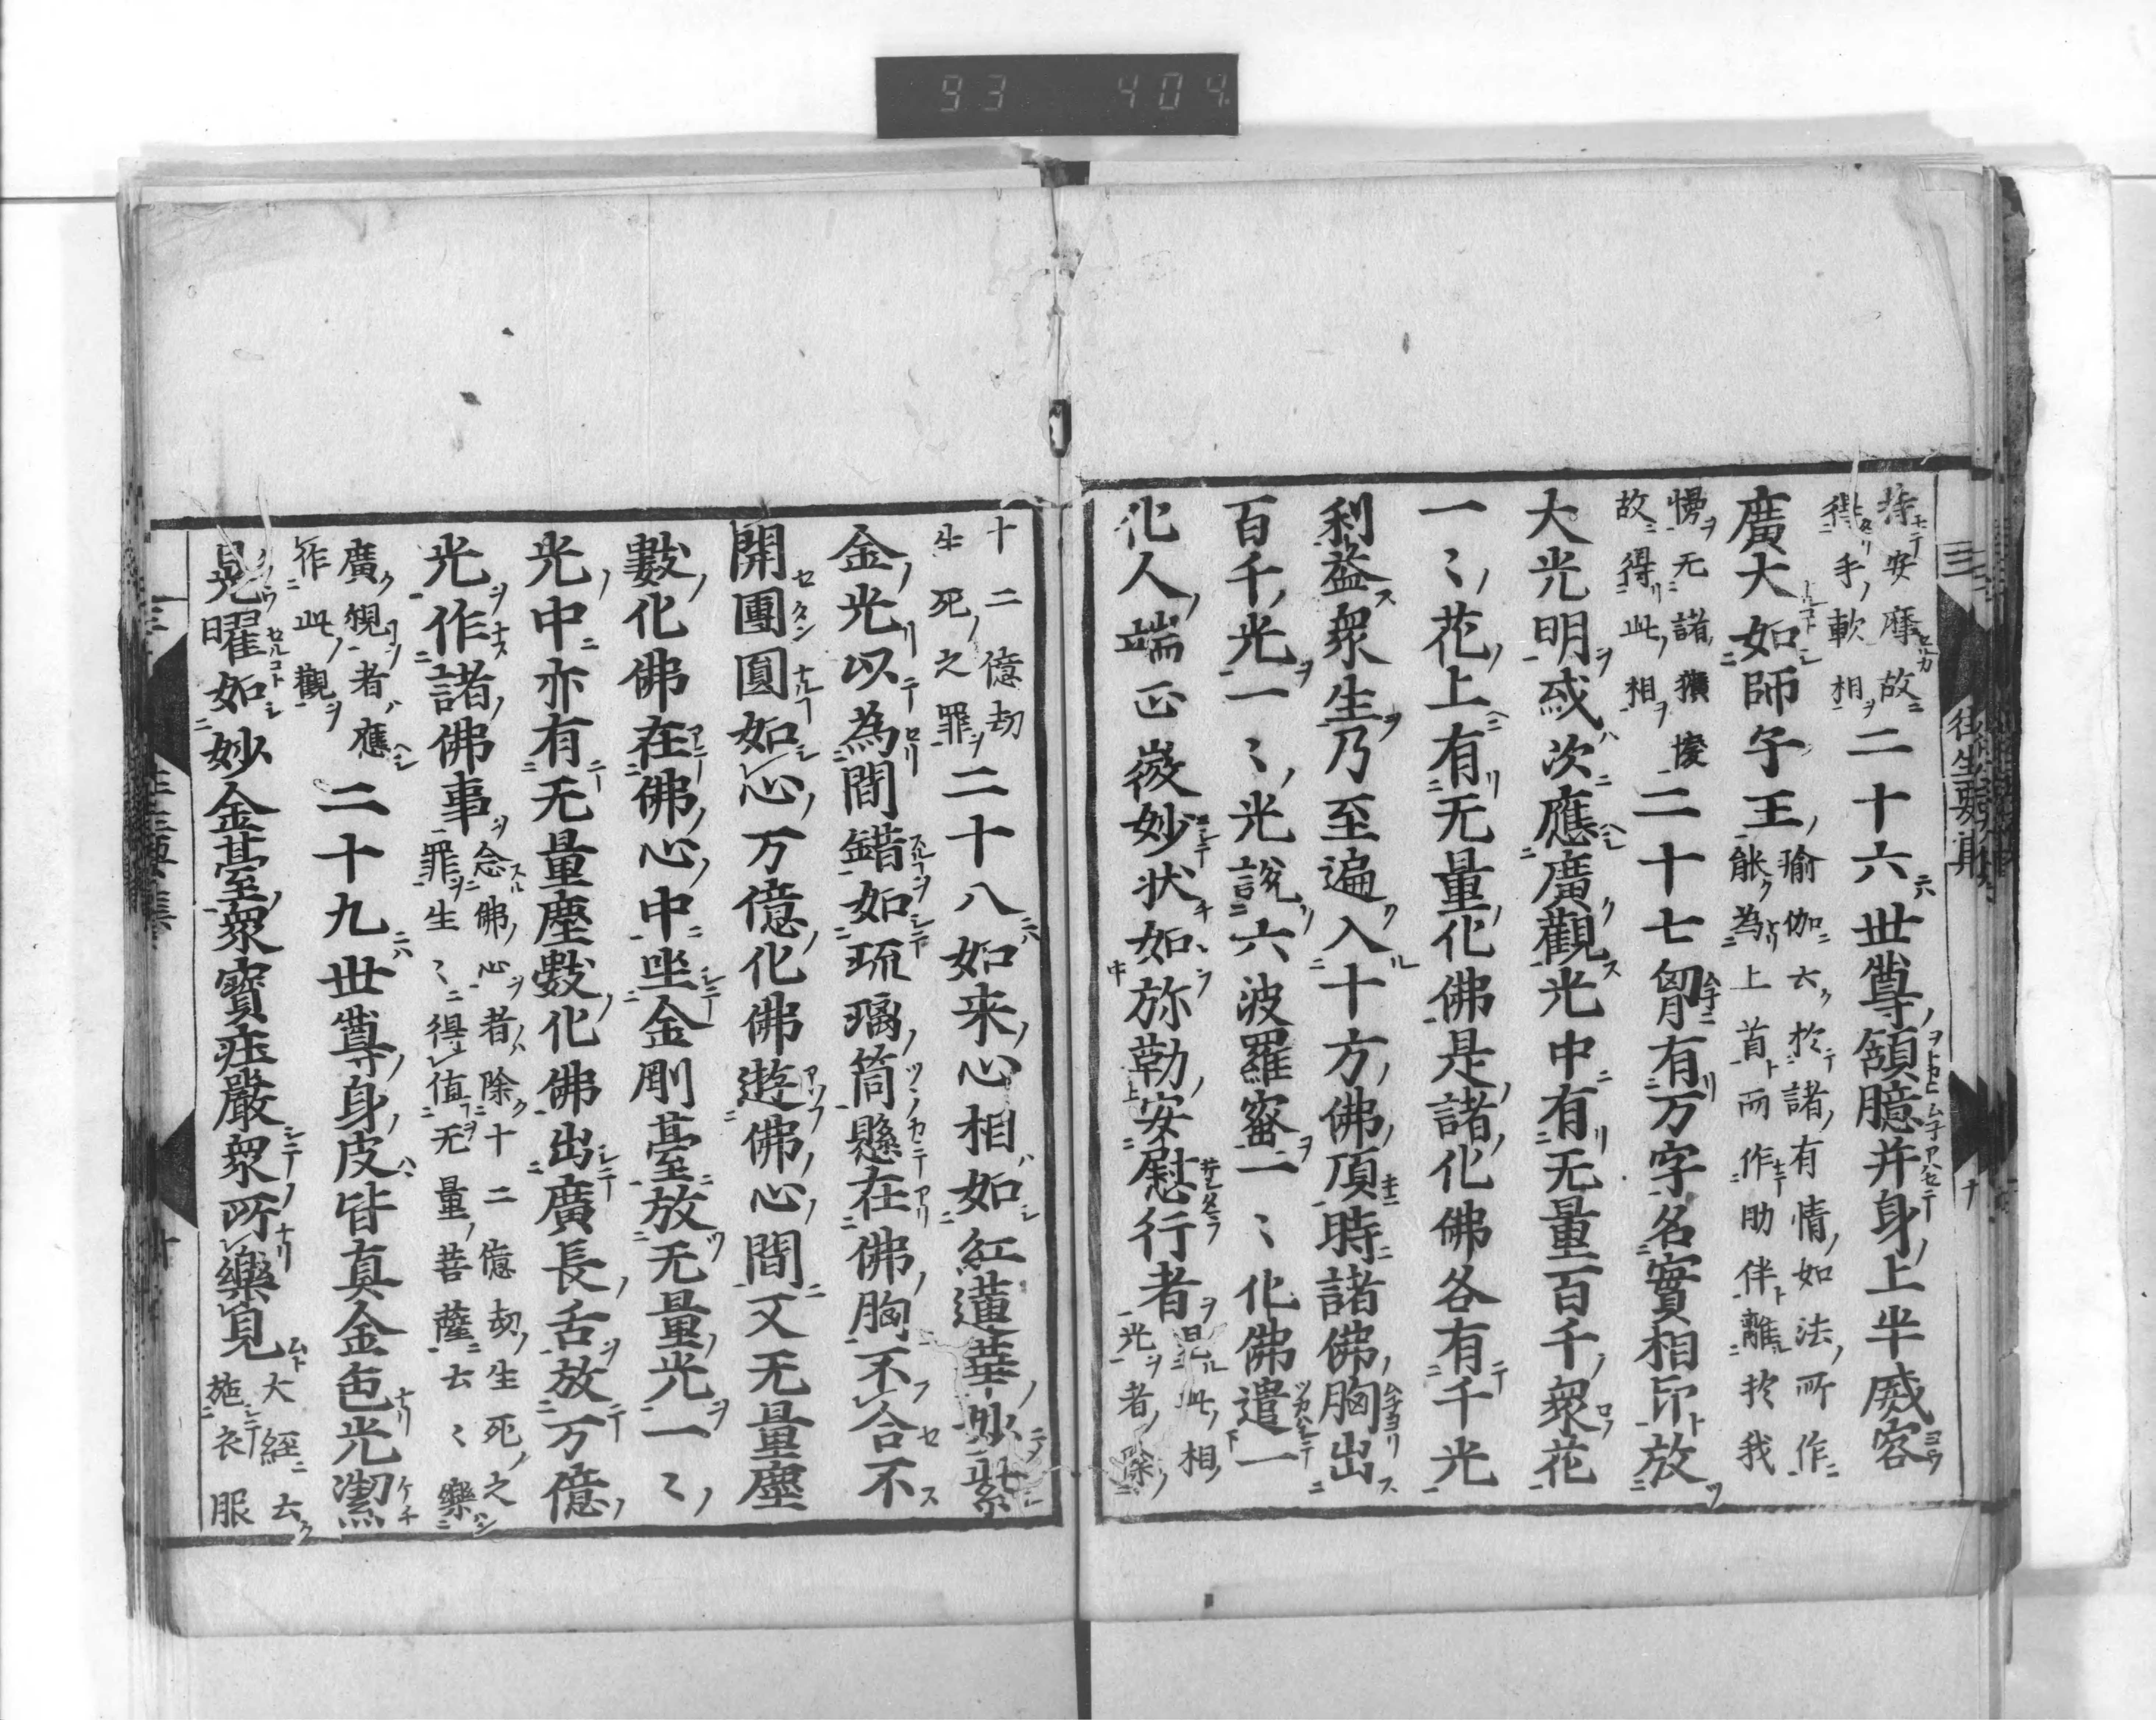 93 404
往生要集
持安摩故
得手軟相
二十六世尊頷臆并身上半威容
廣大如師子王
瑜伽云於諸有情如法所作
能為上首而作助伴離於我
慢无諸獷悷
故得此相
二十七胷有万字名實相印放
大光明或次應廣觀光中有无量百千衆花
一〻花上有无量化佛是諸化佛各有千光
利益衆生乃至遍入十方佛頂時諸佛胸出
百千光一〻光說六波羅蜜一〻化佛遣一
化人端正微妙状如弥勒安慰行者
見此相
光者除
十二億劫
生死之罪
二十八如来心相如紅蓮華妙紫
金光以為間錯如琉璃筒懸在佛胸不合不
開團圓如心万億化佛遊佛心間又无量塵
數化佛在佛心中坐金剛臺放无量光一〻
光中亦有无量塵數化佛出廣長舌放万億
光作諸佛事
念佛心者除十二億劫生死之
罪生〻得值无量菩薩云〻樂
廣觀者應
作此觀
二十九世尊身皮皆真金色光潔
晃曜如妙金臺衆寶莊嚴衆所樂見
大經云
施衣服